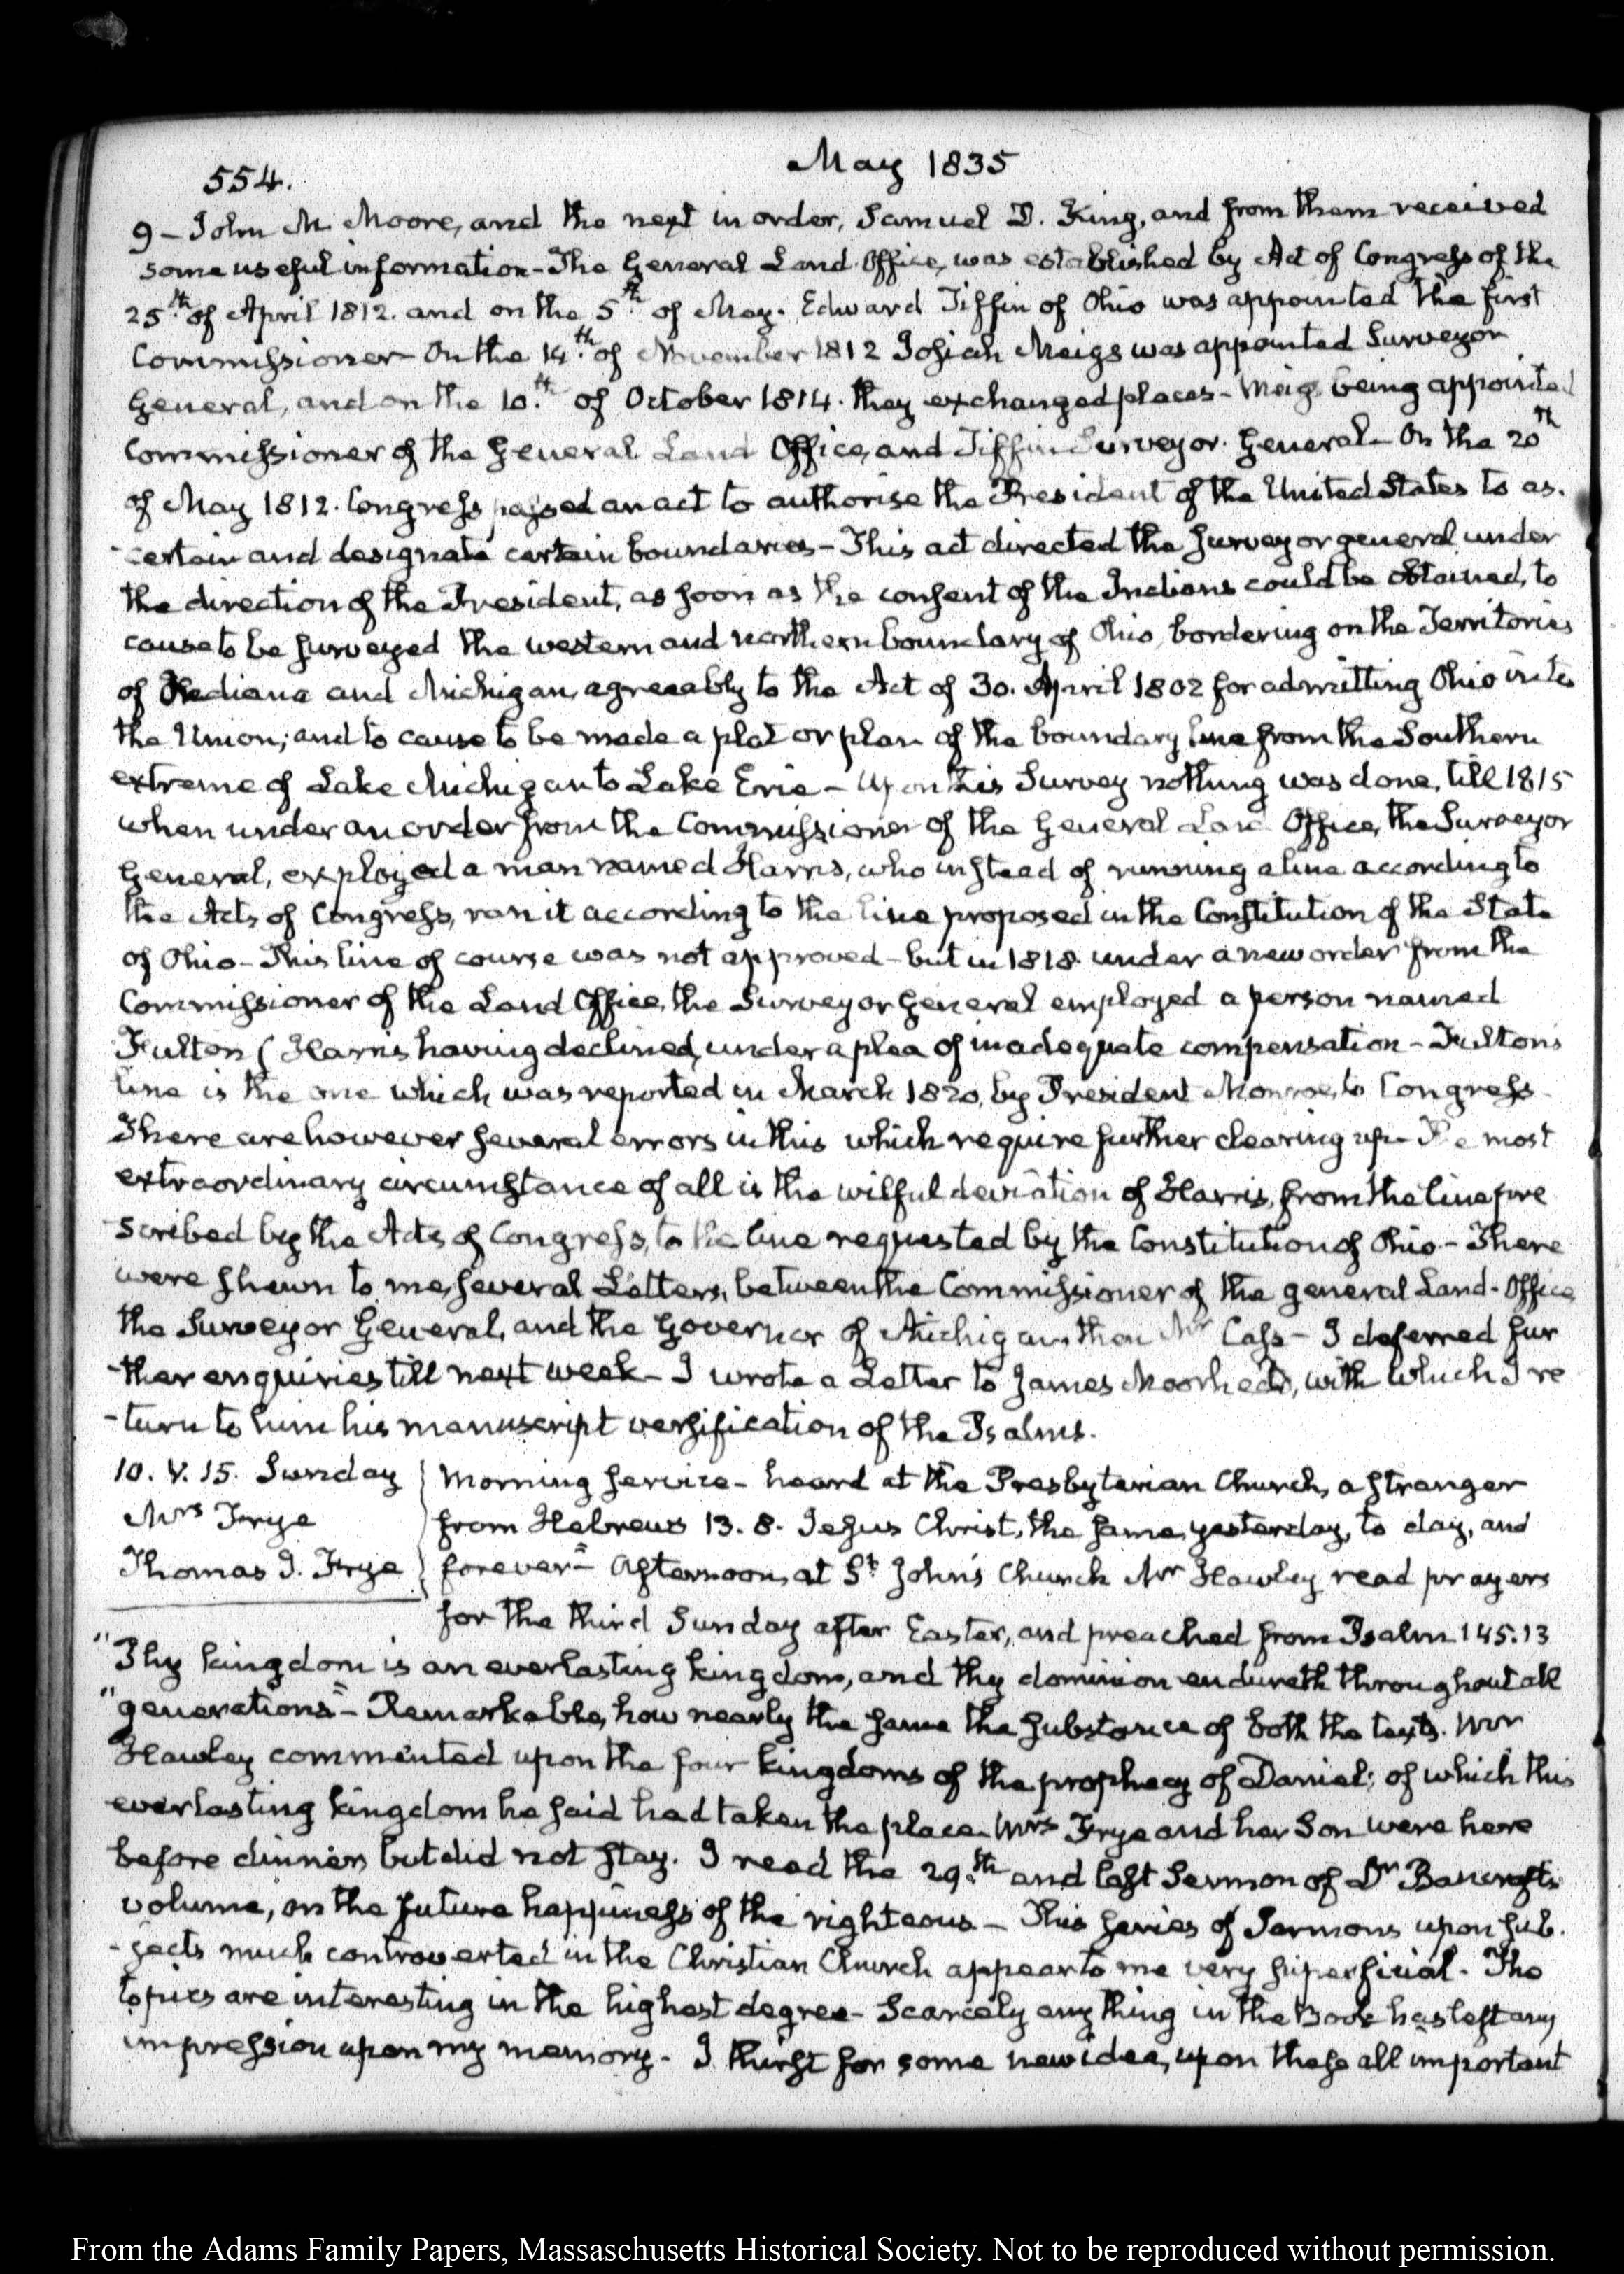 554.
May 1835
9 – John M. Moore, and the next in order, Samuel D. King, and from them received
some useful information – The General Land Office, was established by Act of Congress of the
25.th of April 1812. and on the 5.th of May. Edward Tiffin of Ohio was appointed the first
Commissioner – On the 14.th of November 1812 Josiah Meigs was appointed Surveyor
General, and on the 10.th of October 1814. they exchanged places – Meigs being appointed
Commissioner of the General Land Office, and Tiffin Surveyor General – On the 20th
of May 1812. Congress passed an act to authorise the President of the United States to as-
-certain and designate certain boundaries – This act directed the Surveyor general under
the direction of the President, as soon as the consent of the Indians could be obtained, to
cause to be surveyed the western and northern boundary of Ohio, bordering on the Territories
of Indiana and Michigan, agreeably to the Act of 30. April 1802 for admitting Ohio into
the Union; and to cause to be made a plat or plan of the boundary line from the Southern
extreme of Lake Michigan to Lake Erie – Upon this Survey nothing was done, till 1815
when under an order from the Commissioner of the General Land Office, the Surveyor
General, employed a man named Harris, who instead of running a line according to
the Acts of Congress, ran it according to the line proposed in the Constitution of the State
of Ohio – This line of course was not approved – but in 1818. under a new order from the
Commissioner of the Land Office, the Surveyor General employed a person named
Fulton (Harris having declined, under a plea of inadequate compensation – Fultons
line is the one which was reported in March 1820, by President Monroe, to Congress.
There are however several errors in this which require further clearing up – The most
extraordinary circumstance of all is the wilful deviation of Harris, from the line pre
scribed by the Acts of Congress, to the line requested by the Constitution of Ohio – There
were shewn to me, several Letters, between the Commissioner of the general Land-Office
the Surveyor General, and the Governor of Michigan, then Mr Cass – I deferred fur
-ther enquiries till next week – I wrote a Letter to James Moorhead, with which I re
-turn to him his manuscript versification of the Psalms.
10. V. 15. Sunday
Mrs Frye
Thomas J. Frye
Morning service – heard at the Presbyterian Church, a stranger
from Hebrews 13. 8. Jesus Christ, the same, yesterday, to day, and
forever" – Afternoon, at St John's Church Mr Hawley read prayers
for the third Sunday after Easter, and preached from Psalm 145.13
"Thy kingdom is an everlasting kingdom, and thy dominion endureth throughout all
"generations" – Remarkable, how nearly the same the substance of both the texts. Mr
Hawley commented upon the four kingdoms of the prophecy of Daniel; of which this
everlasting kingdom he said had taken the place. Mrs Frye and her Son were here
before dinner, but did not stay. I read the 29.th and last Sermon of Dr Bancroft's
volume, on the future happiness of the righteous. – This series of Sermons upon sub-
-jects much controverted in the Christian Church appear to me very superficial – The
topics are interesting in the highest degree – Scarcely any thing in the Book has left any
impression upon my memory – I thirst for some new idea, upon these all important
From the Adams Family Papers, Massaschusetts Historical Society. Not to be reproduced without permission.